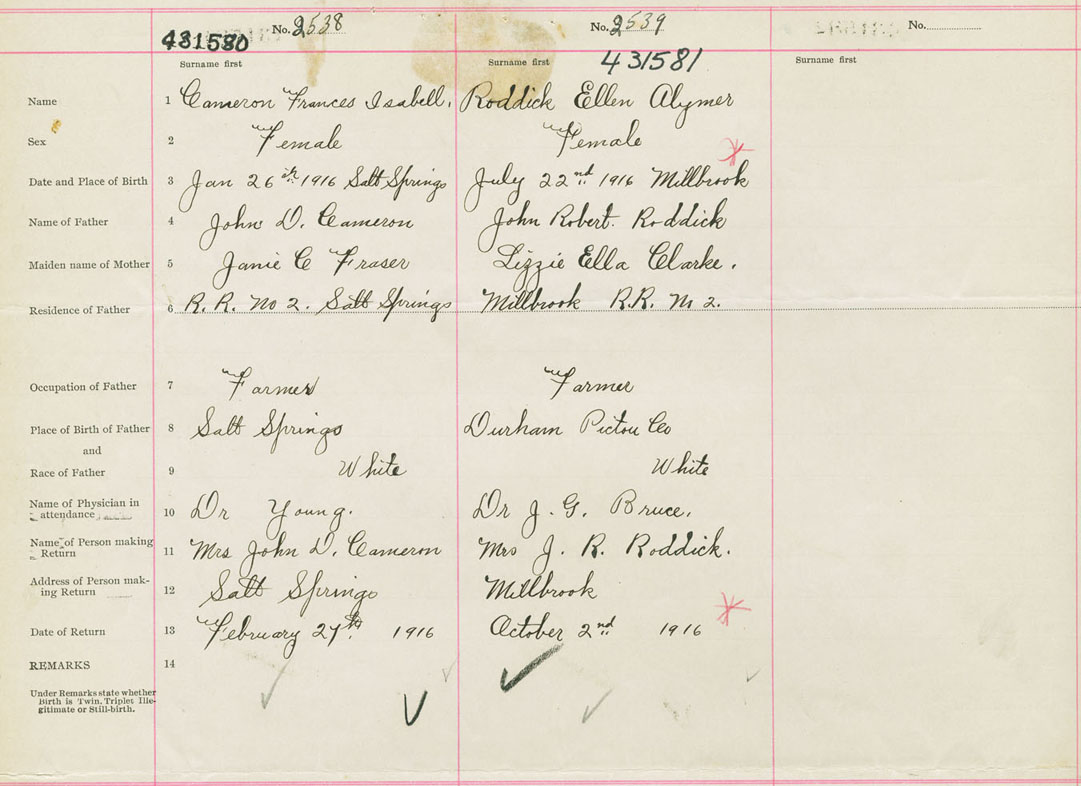 No. 2538
No. 2539
No.
431580
431581
Surname first
Surname first
Surname first
Name 1 Cameron Frances Isabell, Roddick Ellen Alymer
Sex 2 Female Female
Date and Place of Birth 3 Jan 26th 1916 Salt Springs July 22nd 1916 Millbrook
Name of Father 4 John D. Cameron John Robert. Roddick
Maiden name of Mother 5 Janie C Fraser Lizzie Ella Clarke.
Residence of Father 6 R. R. No 2. Salt Springs Millbrook R.R. No 2.
Occupation of Father 7 Farmer Farmer
Place of Birth of Father 8 Salt Springs Durham Pictou Co
and
Race of Father 9 White White
Name of Physician in
attendance 10 Dr Young. Dr J. G. Bruce.
Name of Person making
Return 11 Mrs John D. Cameron Mrs J. R. Roddick.
Address of Person mak-
ing Return 12 Salt Springs Millbrook
Date of Return 13 February 27th 1916 October 2nd 1916
REMARKS 14
Under Remarks state whether
Birth is Twin, Triplet Ille-
gitimate or Still-birth.